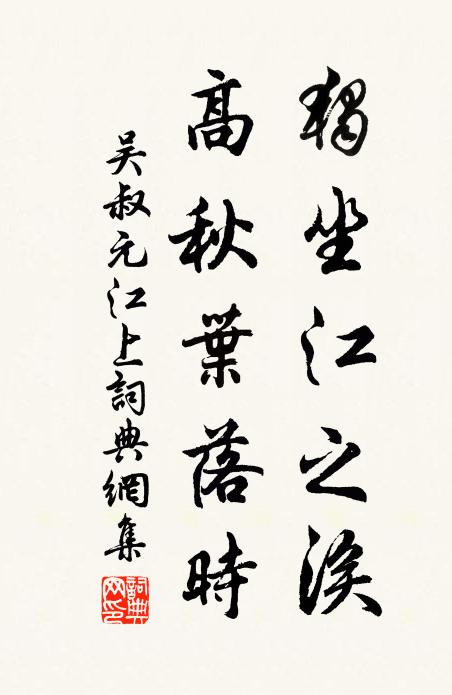 獨坐江之涘
高秋葉落時
吴叔元江上詞典網集
詞典網印